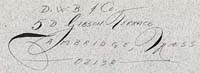 D. W. B. & Co.
5 D Gibson Terrace
Cambridge, Mass
02138